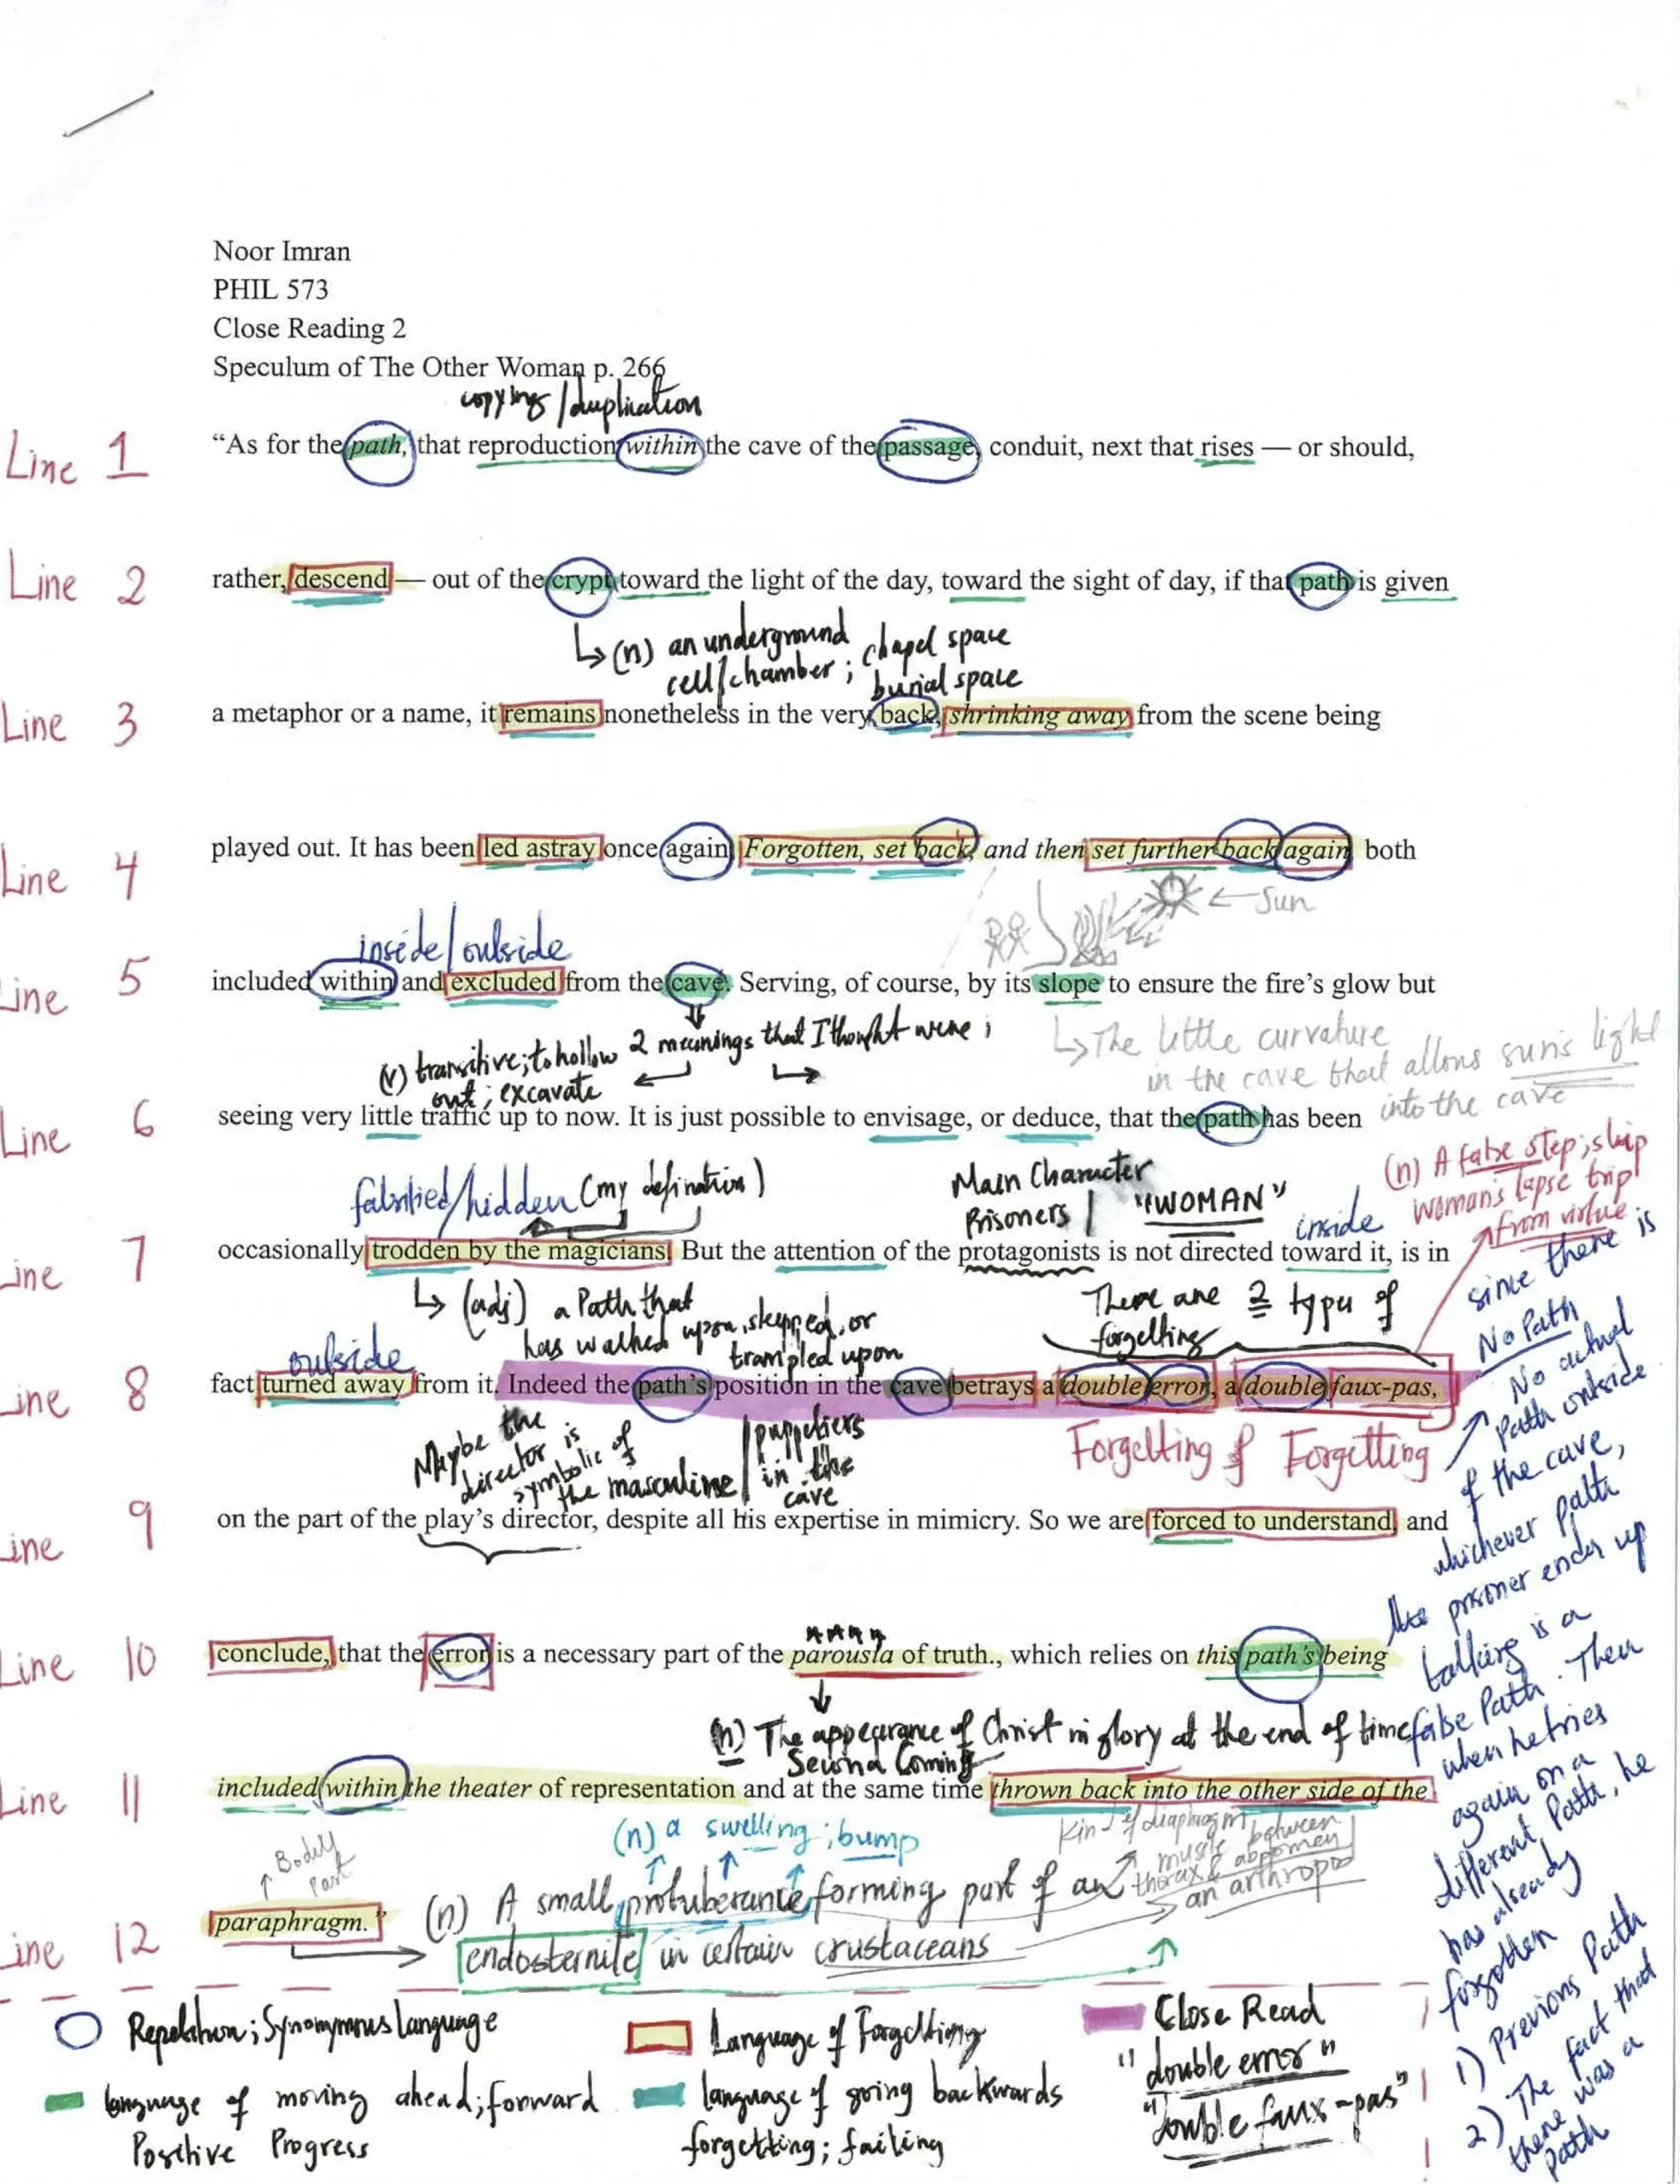 Noor Imran
PHIL 573
Close Reading 2
Speculum of The Other Woman p. 266
copying/duplication
Line 1
“As for the path, that reproduction within the cave of the passage, conduit, next that rises — or should,
Line 2
rather, descend — out of the crypt toward the light of the day, toward the sight of day, if that path is given
↳ (n) an underground cell/chamber; chapel space
burial space
Line 3
a metaphor or a name, it remains nonetheless in the very back, shrinking away from the scene being
Line 4
played out. It has been led astray once again. Forgotten, set back, and then set further back again both
← Sun
inside/outside
Line 5
included within and excluded from the cave. Serving, of course, by its slope to ensure the fire’s glow but
(v) transitive; to hollow out; excavate
2 meanings that I thought were;
↳ The little curvature
in the cave that allows sun's light
into the cave
Line 6
seeing very little traffic up to now. It is just possible to envisage, or deduce, that the path has been
falsified/hidden (my defination)
Main Character
Prisoners / "WOMAN"
inside
(n) A false step; slip
woman's lapse trip
from virtue
Line 7
occasionally trodden by the magicians. But the attention of the protagonists is not directed toward it, is in
↳ (adj) a Path that
has walked upon, stepped, or
trampled upon
There are 2 type of
forgetting
outside
Line 8
fact turned away from it. Indeed the path’s position in the cave betrays a double error, a double faux-pas,
Forgetting of Forgetting
Maybe the
director is
symbolic of
the masculine / puppetiers
in the
cave
Line 9
on the part of the play’s director, despite all his expertise in mimicry. So we are forced to understand, and
Line 10
conclude, that the error is a necessary part of the parousia of truth., which relies on this path’s being
(n) The appearance of Christ in glory at the end of time
Second Coming
Line 11
included within the theater of representation and at the same time thrown back into the other side of the
(n) a swelling; bump
Kind of diaphragm
muscle between
thorax & abdomen
an arthropo
Bodily
Part
Line 12
paraphragm.”
(n) A small protuberance forming part of an
endosternite in certain crustaceans
since there is
No Path
No actual
Path outside
of the cave,
whichever path
the prisoner ends up
talking is a
false Path. Then
when he tries
again on a
different Path, he
has already
forgotten
1) Previous Path
2) The fact that
there was a
path
Repetation; Synonymous language
Language of Forgetting
Close Read
"double error"
"double faux-pas"
language of moving ahead; forward
Positive Progress
language of going backwards
forgetting; failing